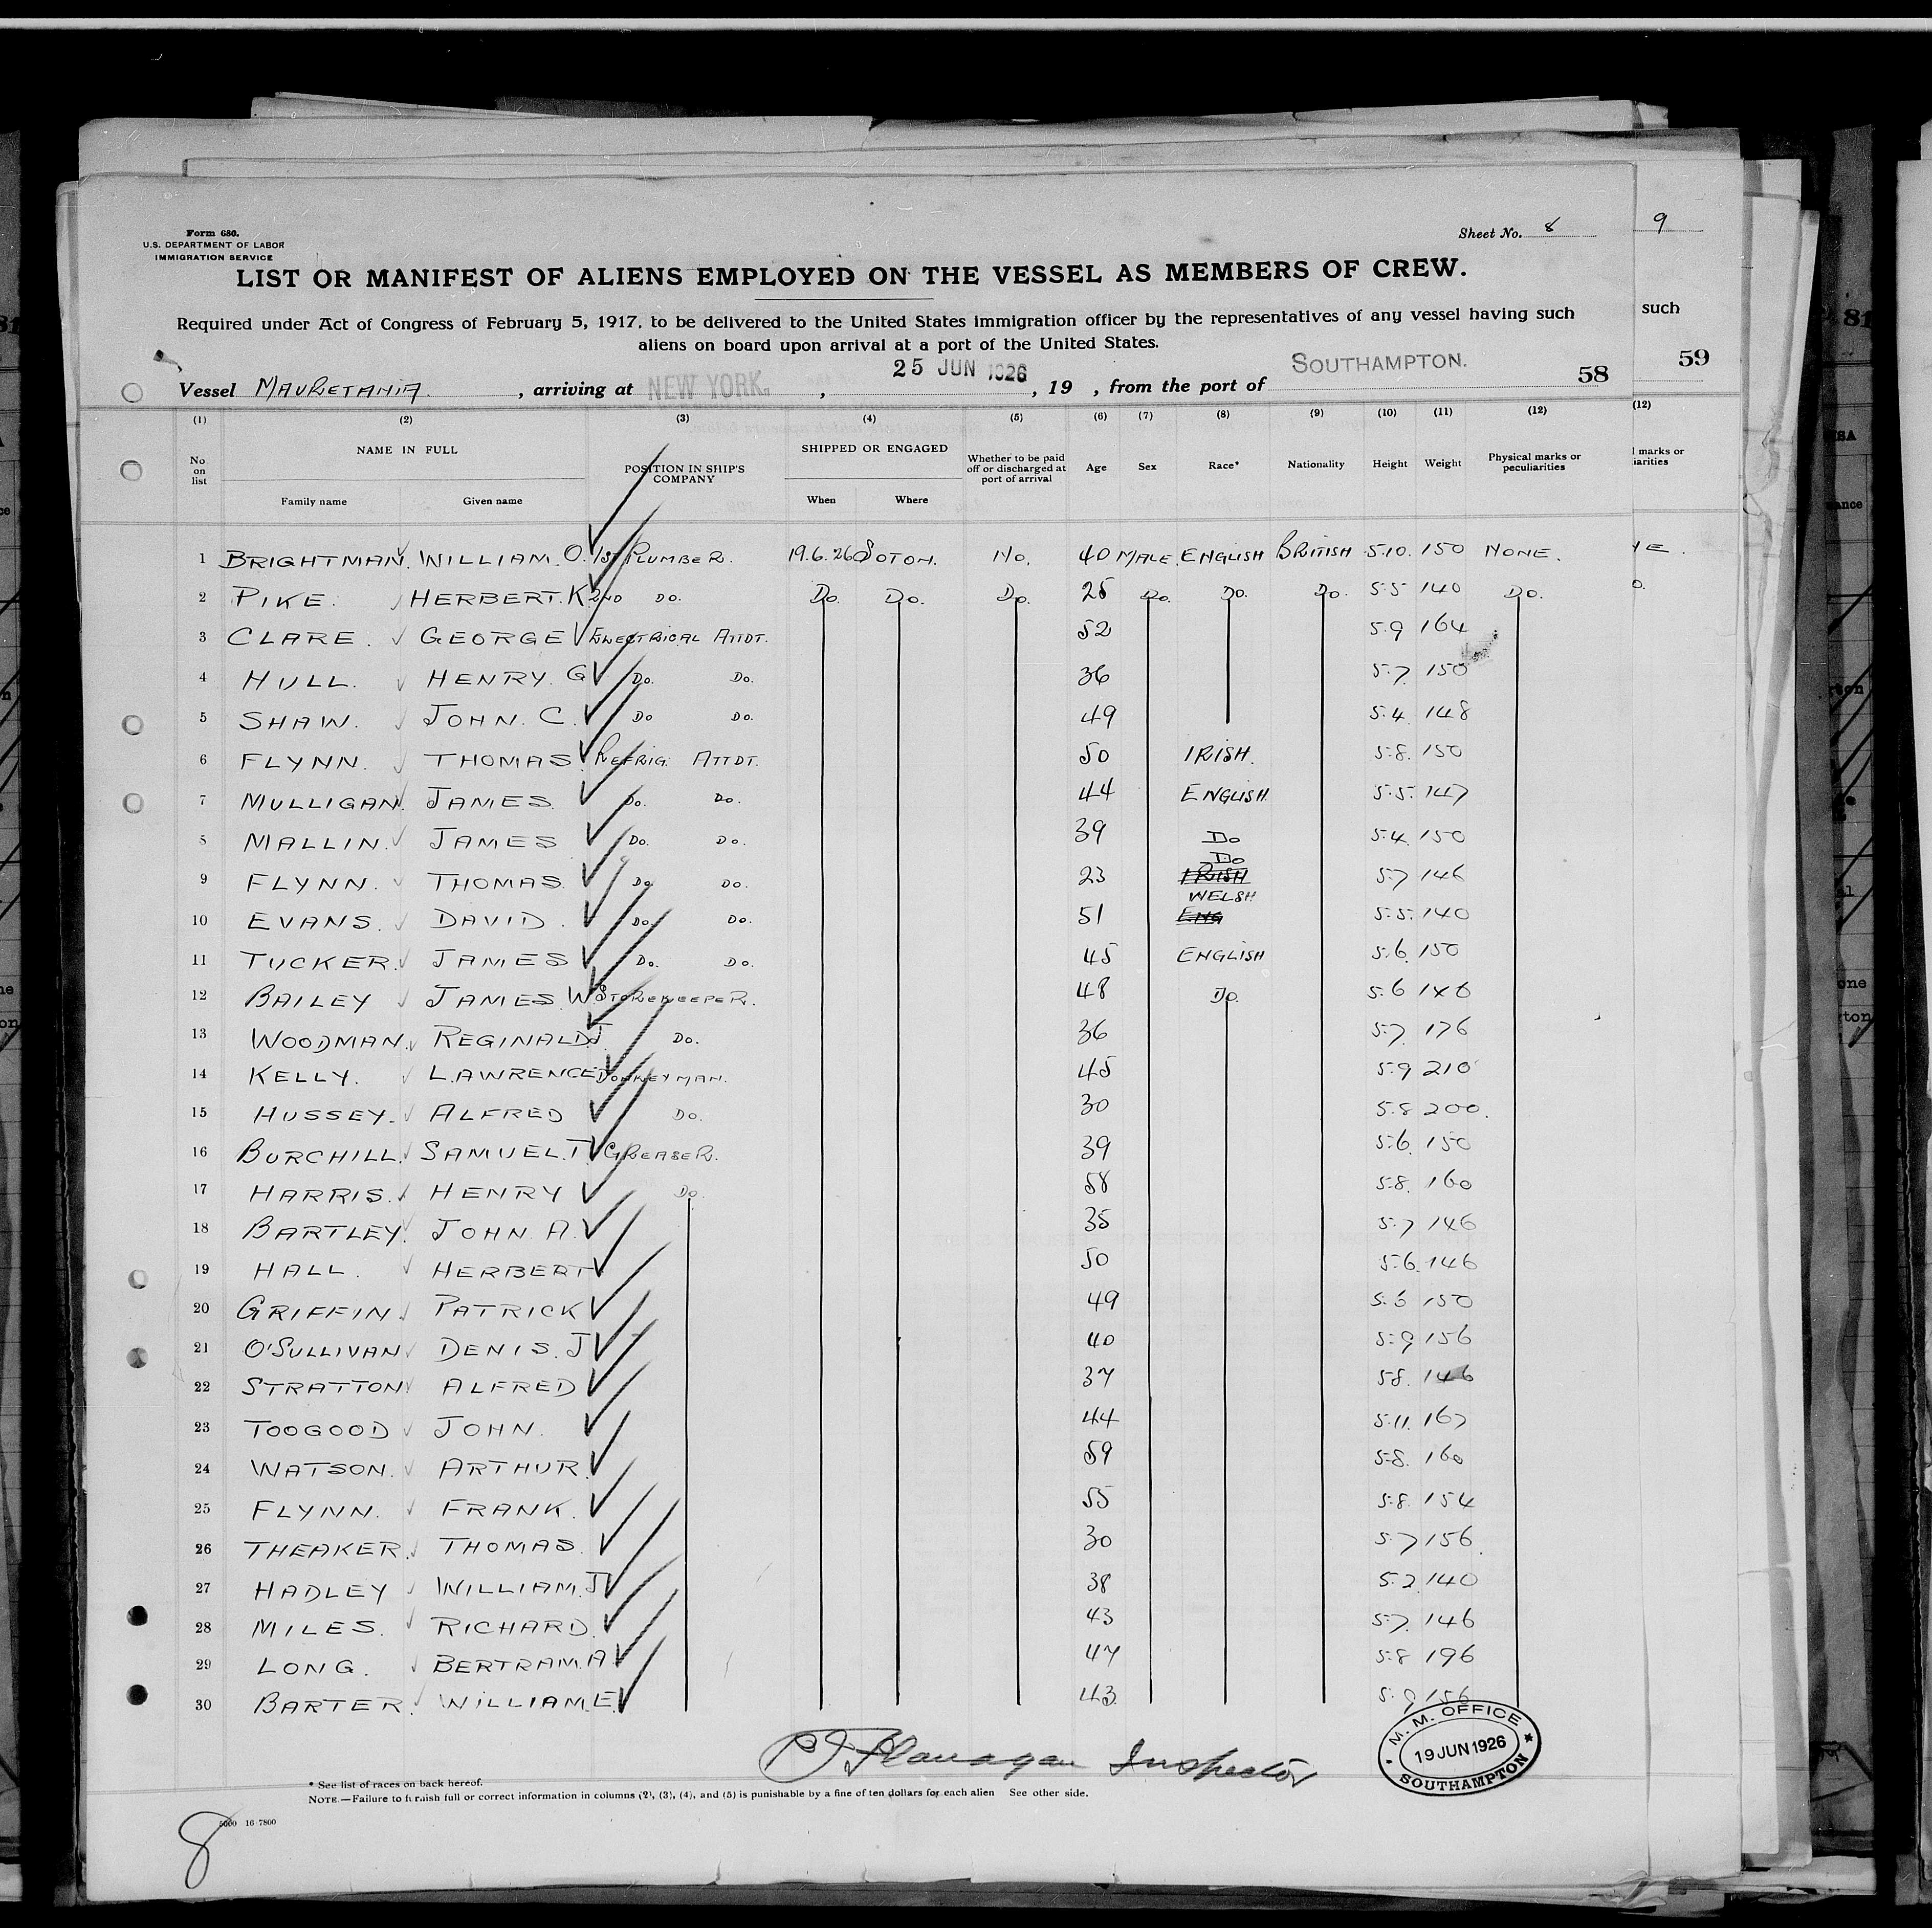 Form 680.
U.S. DEPARTMENT OF LABOR
IMMIGRATION SERVICE
Sheet No. 8
9
LIST OR MANIFEST OF ALIENS EMPLOYED ON THE VESSEL AS MEMBERS OF CREW.
Required under Act of Congress of February 5, 1917, to be delivered to the United States immigration officer by the representatives of any vessel having such
such
aliens on board upon arrival at a port of the United States.
Vessel MAURETANIA. , arriving at NEW YORK. , 25 JUN 1926 , 19 , from the port of SOUTHAMPTON. 58
59
(1) (2) (3) (4) (5) (6) (7) (8) (9) (10) (11) (12)
(12)
No on list NAME IN FULL POSITION IN SHIP'S COMPANY SHIPPED OR ENGAGED Whether to be paid off or discharged at port of arrival Age Sex Race* Nationality Height Weight Physical marks or peculiarities
Family name Given name When Where
1 BRIGHTMAN. WILLIAM. O. 1ST PLUMBER. 19.6.26 SOTON. NO. 40 MALE. ENGLISH BRITISH 5.10. 150 NONE.
2 PIKE. HERBERT. K 2ND DO. DO. DO. DO. 25 DO. DO. DO. 5.5 140 DO.
3 CLARE. GEORGE ELECTRICAL ATTDT. 52 5.9 164
4 HULL. HENRY. G DO. DO. 36 5.7. 150
5 SHAW. JOHN. C. DO DO. 49 5.4. 148
6 FLYNN. THOMAS REFRIG. ATTDT. 50 IRISH. 5.8. 150
7 MULLIGAN. JAMES. DO. DO. 44 ENGLISH. 5.5. 147
8 MALLIN. JAMES DO. DO. 39 DO 5.4. 150
9 FLYNN. THOMAS. DO. DO. 23 IRISH DO 5.7 146
10 EVANS. DAVID. DO. DO. 51 ENG WELSH 5.5. 140
11 TUCKER. JAMES DO. DO. 45 ENGLISH 5.6. 150
12 BAILEY JAMES. W STOREKEEPER. 48 DO. 5.6
13 WOODMAN. REGINALD. J. DO. 36 5.7. 176
14 KELLY. LAWRENCE DONKEYMAN. 45 5.9 210
15 HUSSEY. ALFRED DO. 30 5.8 200.
16 BURCHILL. SAMUEL. T GREASER. 39 5.6. 150
17 HARRIS. HENRY DO. 58 5.8. 160
18 BARTLEY. JOHN. A. 35 5.7 146
19 HALL. HERBERT 50 5.6. 146
20 GRIFFIN. PATRICK 49 150
21 O'SULLIVAN DENIS. J 40 5.9 156
22 STRATTON ALFRED 37 5.8. 146
23 TOOGOOD JOHN. 44 5.11. 167
24 WATSON. ARTHUR. 59 5.8. 160
25 FLYNN. FRANK. 55 5.8. 154
26 THEAKER. THOMAS. 30 5.7 156
27 HADLEY WILLIAM. J 38 5.2. 140
28 MILES. RICHARD. 43 5.7. 146
29 LONG. BERTRAM. A 47 5.8 196
30 BARTER. WILLIAM. E. 43. 5.9 156
Flanagan Inspector
M. M. OFFICE
19 JUN 1926
SOUTHAMPTON
* See list of races on back hereof.
NOTE.—Failure to furnish full or correct information in columns (2), (3), (4), and (5) is punishable by a fine of ten dollars for each alien See other side.
16 7800
8